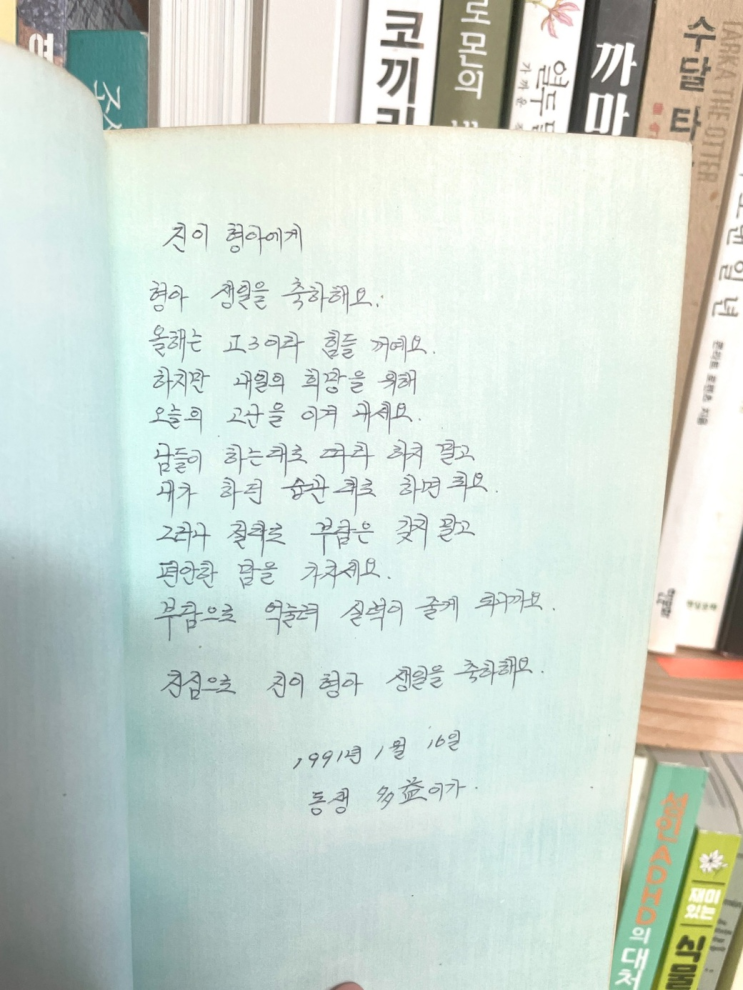 코끼리
로몬의
열두
까마
수달 타
LARKA THE OTTER
콘라트 로렌츠 지음
진이 형아에게
형아 생일을 축하해요.
올해는 고3이라 힘들 꺼예요.
하지만 내일의 희망을 위해
오늘의 고난을 이겨 내세요.
남들이 하는대로 따라 하지 말고
내가 하던 습관대로 하면 되요.
그러나 절대로 부담은 갖지 말고
편안한 맘을 가지세요.
부담으로 억눌려 실력이 줄게 되니까요.
진심으로 진이 형아 생일을 축하해요.
1991년 1월 16일
동생 多益이가.
성인 ADHD의 대처
재미있는
식물